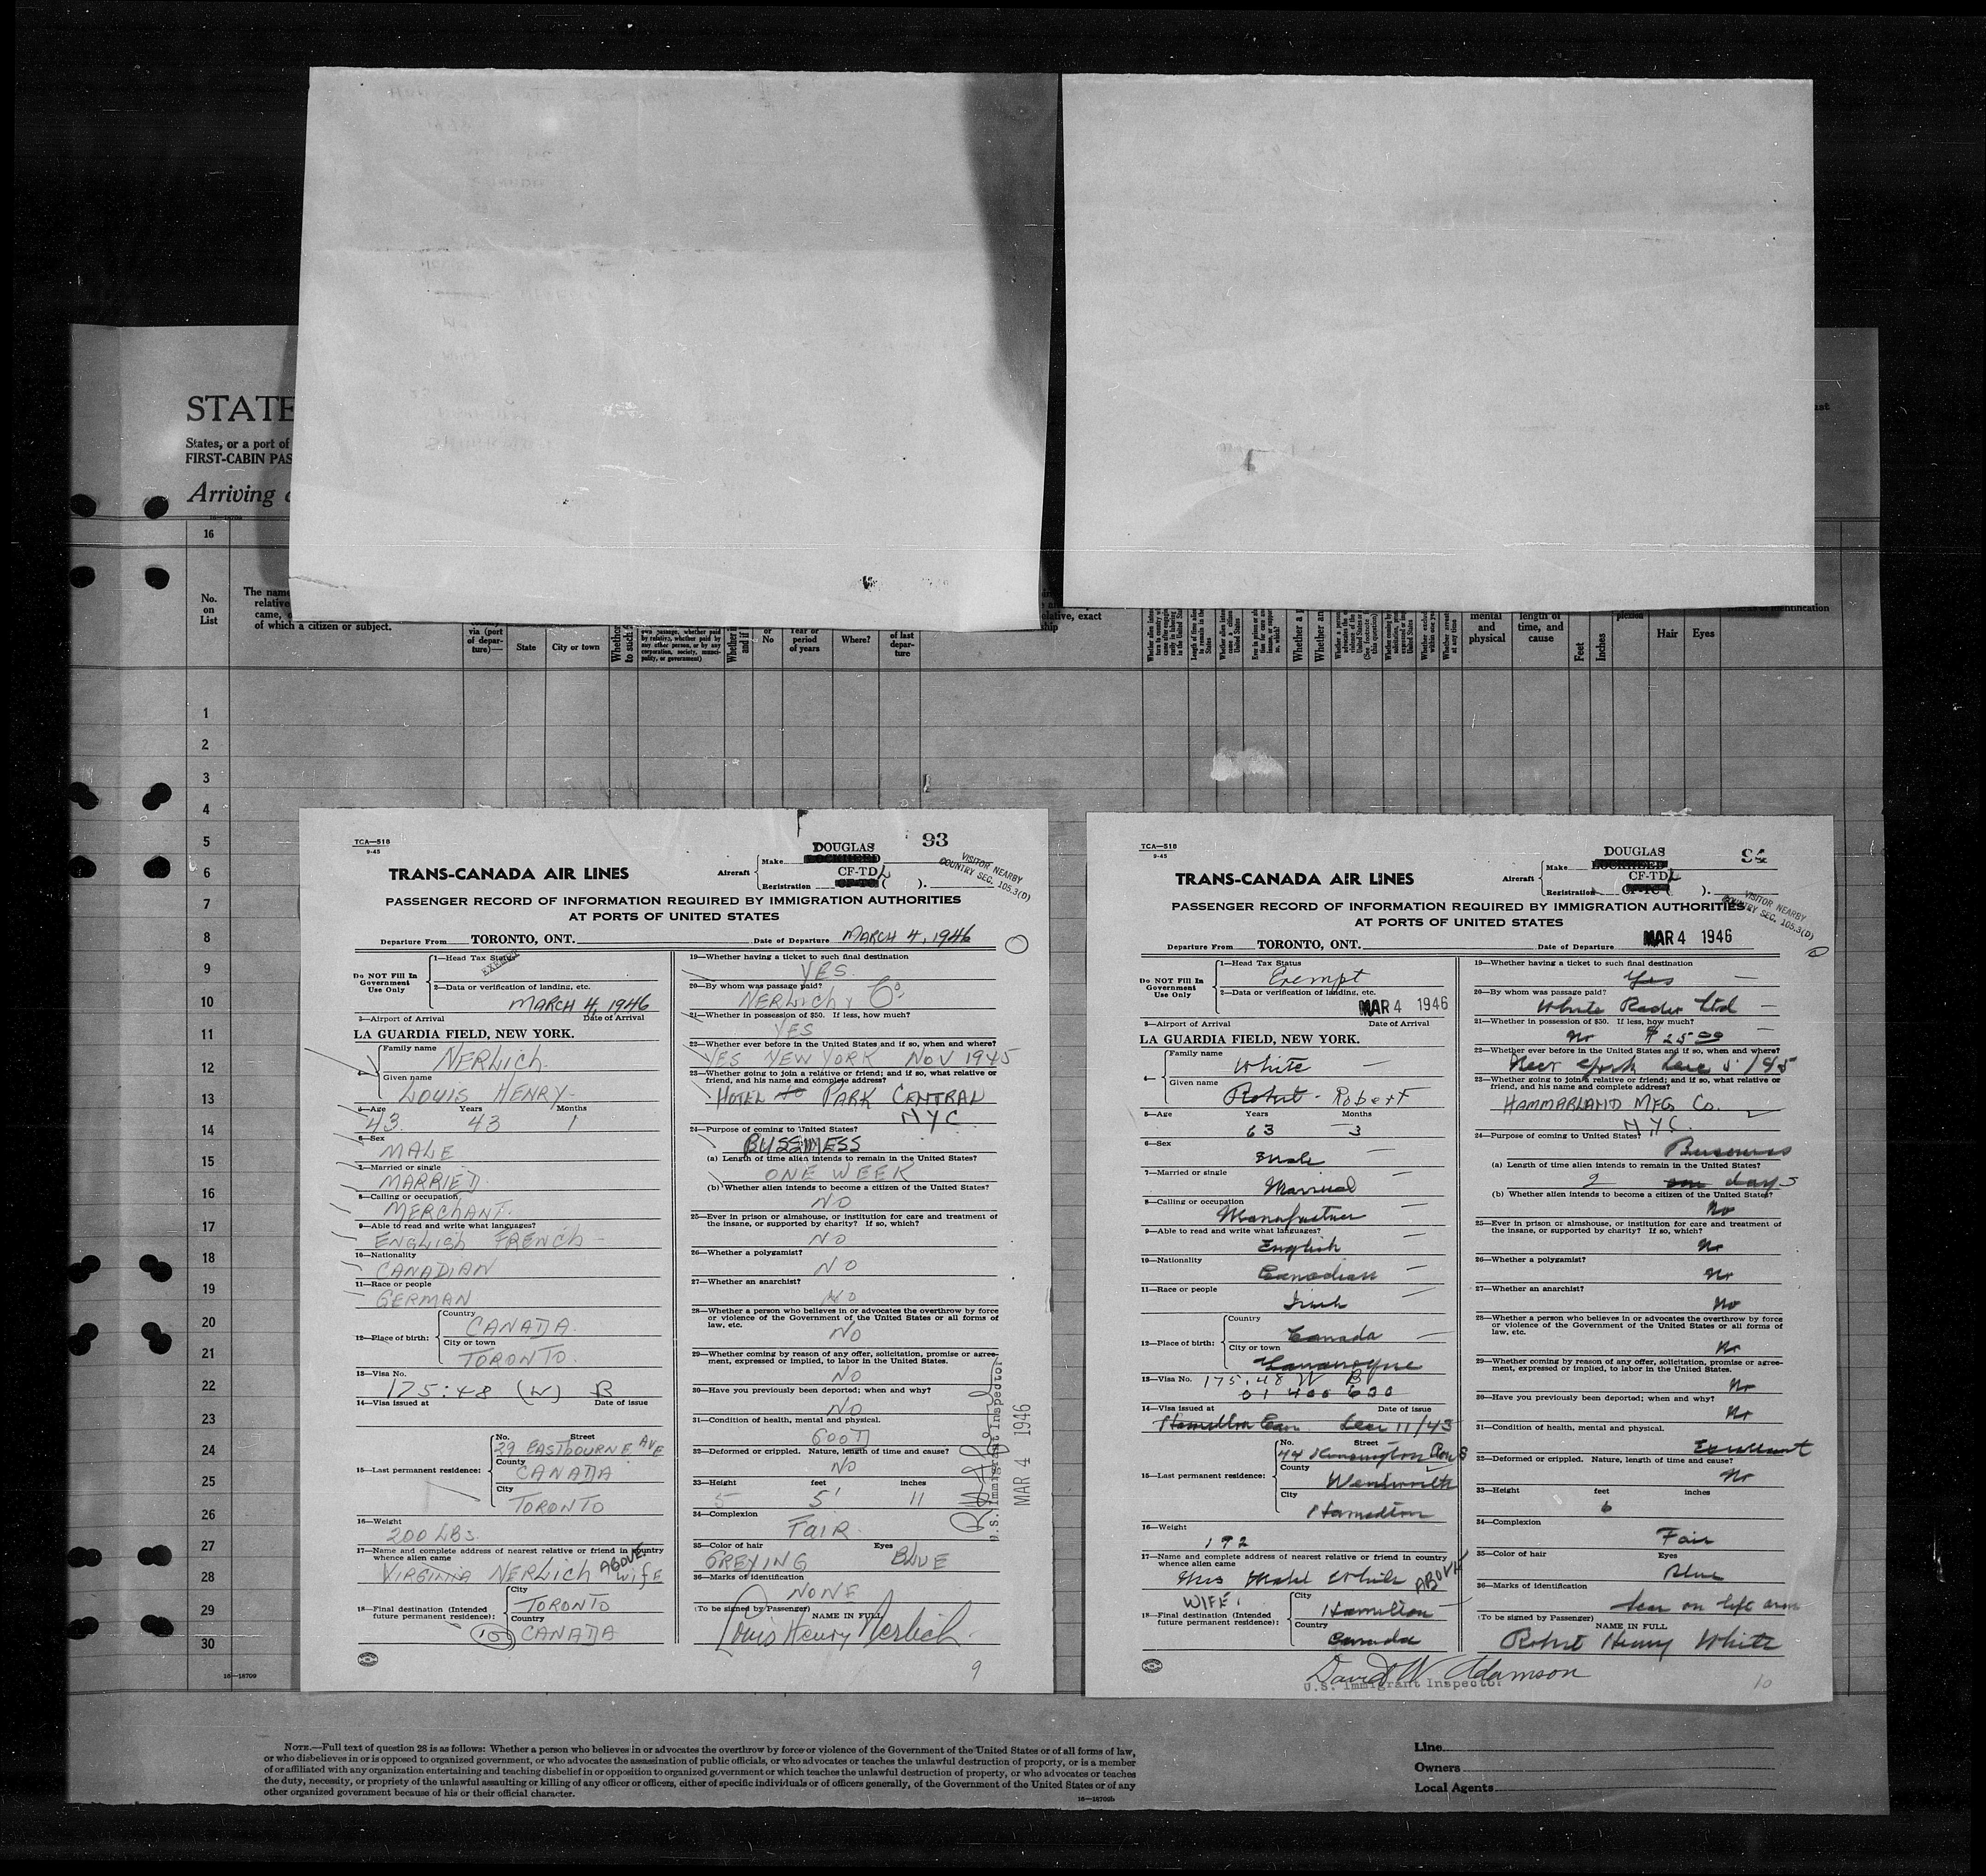 STATE
States, or a port of
FIRST-CABIN PAS
Arriving
16
No.
on
List
The name
relative
came,
of which a citizen or subject.
via (port
of depar-
ture)—
State
City or town
Whether
to such f
own passage, whether paid
by relative, whether paid by
any other person, or by any
corporation, society, munici-
pality, or government)
Whether i
and if
or
No
Year or
period
of years
Where?
of last
depar-
ture
relative, exact
Whether a
Whether an
mental
and
physical
length of
time, and
cause
Feet
Inches
plexion
Hair
Eyes
1
2
3
4
5
6
7
8
9
10
11
12
13
14
15
16
17
18
19
20
21
22
23
24
25
26
27
28
29
30
16—18709
TCA—518
9-45
93
TRANS-CANADA AIR LINES
Aircraft
Make
DOUGLAS
LOCKHEED
Registration
CF-TDL
CF-TC ( ).
VISITOR NEARBY
COUNTRY SEC. 105.3(D)
PASSENGER RECORD OF INFORMATION REQUIRED BY IMMIGRATION AUTHORITIES
AT PORTS OF UNITED STATES
Departure From TORONTO, ONT. Date of Departure MARCH 4, 1946
Do NOT Fill In
Government
Use Only
1—Head Tax Status
EXEMPT
2—Data or verification of landing, etc.
MARCH 4, 1946
3—Airport of Arrival Date of Arrival
LA GUARDIA FIELD, NEW YORK.
4—
Family name
NERLICH
Given name
LOUIS HENRY
5—Age Years Months
43 43 1
6—Sex
MALE
7—Married or single
MARRIED
8—Calling or occupation
MERCHANT
9—Able to read and write what languages?
ENGLISH FRENCH
10—Nationality
CANADIAN
11—Race or people
GERMAN
12—Place of birth:
Country
CANADA
City or town
TORONTO
13—Visa No.
175:48 (W) B
14—Visa issued at Date of issue
15—Last permanent residence:
No. Street
29 EASTBOURNE AVE
County
CANADA
City
TORONTO
16—Weight
200 LBS.
17—Name and complete address of nearest relative or friend in country
whence alien came
VIRGINIA NERLICH ABOVE WIFE
18—Final destination (Intended
future permanent residence):
City
TORONTO
Country
CANADA
19—Whether having a ticket to such final destination
YES
20—By whom was passage paid?
NERLICH & Co.
21—Whether in possession of $50. If less, how much?
YES
22—Whether ever before in the United States and if so, when and where?
YES NEW YORK NOV 1945
23—Whether going to join a relative or friend; and if so, what relative or
friend, and his name and complete address?
HOTEL PARK CENTRAL
NYC.
24—Purpose of coming to United States?
BUSSINESS
(a) Length of time alien intends to remain in the United States?
ONE WEEK
(b) Whether alien intends to become a citizen of the United States?
NO
25—Ever in prison or almshouse, or institution for care and treatment of
the insane, or supported by charity? If so, which?
NO
26—Whether a polygamist?
NO
27—Whether an anarchist?
NO
28—Whether a person who believes in or advocates the overthrow by force
or violence of the Government of the United States or all forms of
law, etc.
NO
29—Whether coming by reason of any offer, solicitation, promise or agree-
ment, expressed or implied, to labor in the United States.
NO
30—Have you previously been deported; when and why?
NO
31—Condition of health, mental and physical.
GOOD
32—Deformed or crippled. Nature, length of time and cause?
NO
33—Height feet inches
5 5' 11
34—Complexion
FAIR
35—Color of hair Eyes
GREYING BLUE
36—Marks of identification
NONE
(To be signed by Passenger) NAME IN FULL
Louis Henry Nerlich.
U.S. Immigrant Inspector
MAR 4 1946
9
TCA—518
9-45
94
TRANS-CANADA AIR LINES
Aircraft
Make
DOUGLAS
LOCKHEED
Registration
CF-TDL
CF-TC ( ).
VISITOR NEARBY
COUNTRY SEC. 105.3(D)
PASSENGER RECORD OF INFORMATION REQUIRED BY IMMIGRATION AUTHORITIES
AT PORTS OF UNITED STATES
Departure From TORONTO, ONT. Date of Departure MAR 4 1946
Do NOT Fill In
Government
Use Only
1—Head Tax Status
Exempt
2—Data or verification of landing, etc.
MAR 4 1946
3—Airport of Arrival Date of Arrival
LA GUARDIA FIELD, NEW YORK.
4—
Family name
White
Given name
Robert - Robert
5—Age Years Months
63 3
6—Sex
Male
7—Married or single
Married
8—Calling or occupation
Manufacturer
9—Able to read and write what languages?
English
10—Nationality
Canadian
11—Race or people
Irish
12—Place of birth:
Country
Canada
City or town
Gananoque
13—Visa No. 175.48 W B
14—Visa issued at Date of issue
Hamilton Can. Dec 11/43
15—Last permanent residence:
No. Street
44 Kensington Ave S
County
Wentworth
City
Hamilton
16—Weight
192
17—Name and complete address of nearest relative or friend in country
whence alien came
Mrs Mabel White ABOVE
WIFE
18—Final destination (Intended
future permanent residence):
City
Hamilton
Country
Canada
19—Whether having a ticket to such final destination
Yes
20—By whom was passage paid?
White Radio Ltd
21—Whether in possession of $50. If less, how much?
No $25.00
22—Whether ever before in the United States and if so, when and where?
New York Dec 5/45
23—Whether going to join a relative or friend; and if so, what relative or
friend, and his name and complete address?
HAMMARLAND MFG Co.
NYC.
24—Purpose of coming to United States?
Business
(a) Length of time alien intends to remain in the United States?
2 days
(b) Whether alien intends to become a citizen of the United States?
No
25—Ever in prison or almshouse, or institution for care and treatment of
the insane, or supported by charity? If so, which?
No
26—Whether a polygamist?
No
27—Whether an anarchist?
No
28—Whether a person who believes in or advocates the overthrow by force
or violence of the Government of the United States or all forms of
law, etc.
No
29—Whether coming by reason of any offer, solicitation, promise or agree-
ment, expressed or implied, to labor in the United States.
No
30—Have you previously been deported; when and why?
No
31—Condition of health, mental and physical.
Excellent
32—Deformed or crippled. Nature, length of time and cause?
No
33—Height feet inches
6
34—Complexion
Fair
35—Color of hair Eyes
Blue
36—Marks of identification
Scar on left arm
(To be signed by Passenger) NAME IN FULL
Robert Henry White
David W. Adamson
U.S. Immigrant Inspector
10
NOTE.—Full text of question 28 is as follows: Whether a person who believes in or advocates the overthrow by force or violence of the Government of the United States or of all forms of law,
or who disbelieves in or is opposed to organized government, or who advocates the assassination of public officials, or who advocates or teaches the unlawful destruction of property, or is a member
of or affiliated with any organization entertaining and teaching disbelief in or opposition to organized government or which teaches the unlawful destruction of property, or who advocates or teaches
the duty, necessity, or propriety of the unlawful assaulting or killing of any officer or officers, either of specific individuals or of officers generally, of the Government of the United States or of any
other organized government because of his or their official character.
16—18709b
Line
Owners
Local Agents